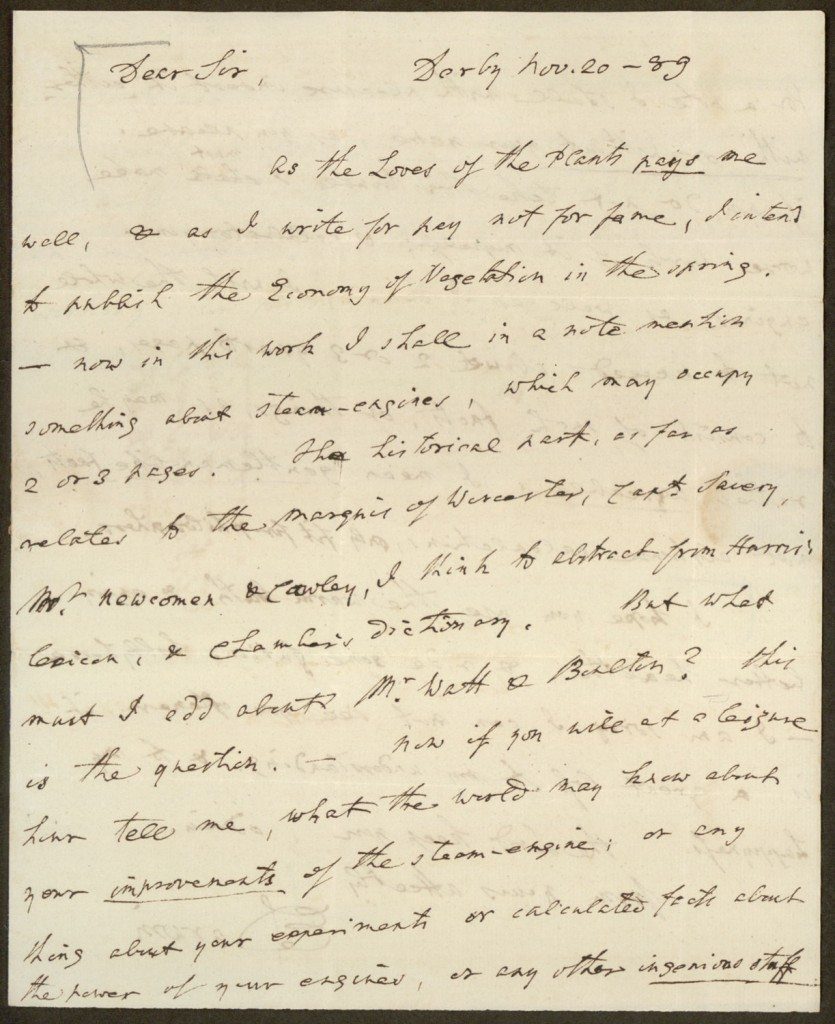 Dear Sir, Derby Nov. 20 - 89
as the Loves of the Plants pays me
well, & as I write for pay not for fame, I intend
to publish the Economy of Vegetation in the spring.
— now in this work I shall in a note mention
something about steam-engines, which may occupy
2 or 3 pages. The historical part, as far as
relates to the marquis of Worcester, Capt. Savery,
Mr. Newcomen & Cawley, I think to abstract from Harris's
lexicon, & Chamber's dictionary. But what
must I add about Mr. Watt & Boulton? this
is the question. — now if you will at a leizure
hour tell me, what the world may know about
your improvements of the steam-engine; or any
thing about your experiments or calculated facts about
the power of your engines, or any other ingenious stuff